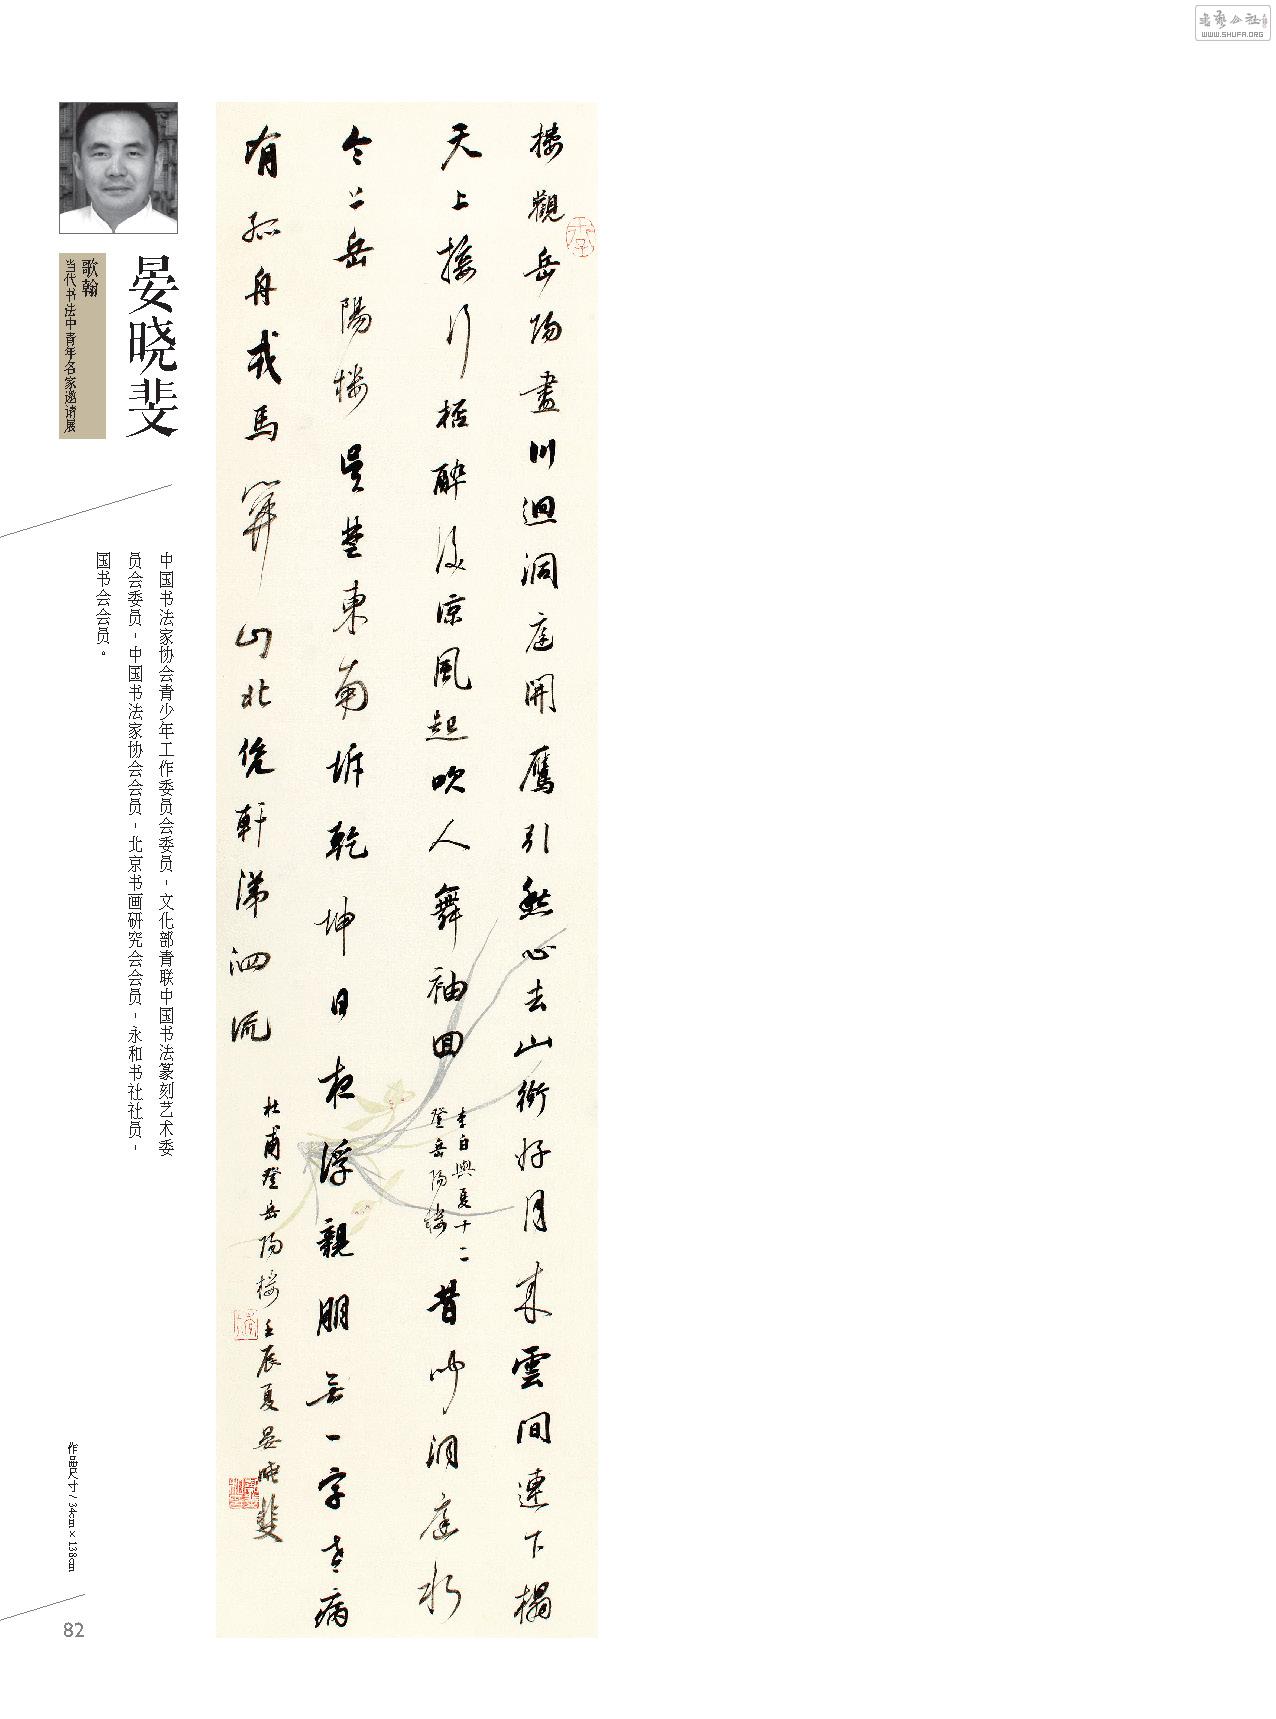 書藝公社
WWW.SHUFA.ORG
楼觀岳陽盡川迥洞庭開鴈引愁心去山銜好月来雲间連下榻
天上接行桮醉後凉風起吹人舞袖回
李白與夏十二
登岳陽楼
昔闻洞庭水
今上岳陽楼吳楚東南坼乾坤日夜浮親朋無一字老病
有孤舟戎馬關山北凭軒涕泗流
杜甫登岳陽楼壬辰夏晏晓斐
晏晓斐
歌翰
当代书法中青年名家邀请展
中国书法家协会青少年工作委员会委员-文化部青联中国书法篆刻艺术委
员会委员-中国书法家协会会员-北京书画研究会会员-永和书社社员-
国书会会员。
作品尺寸/34cm×138cm
82